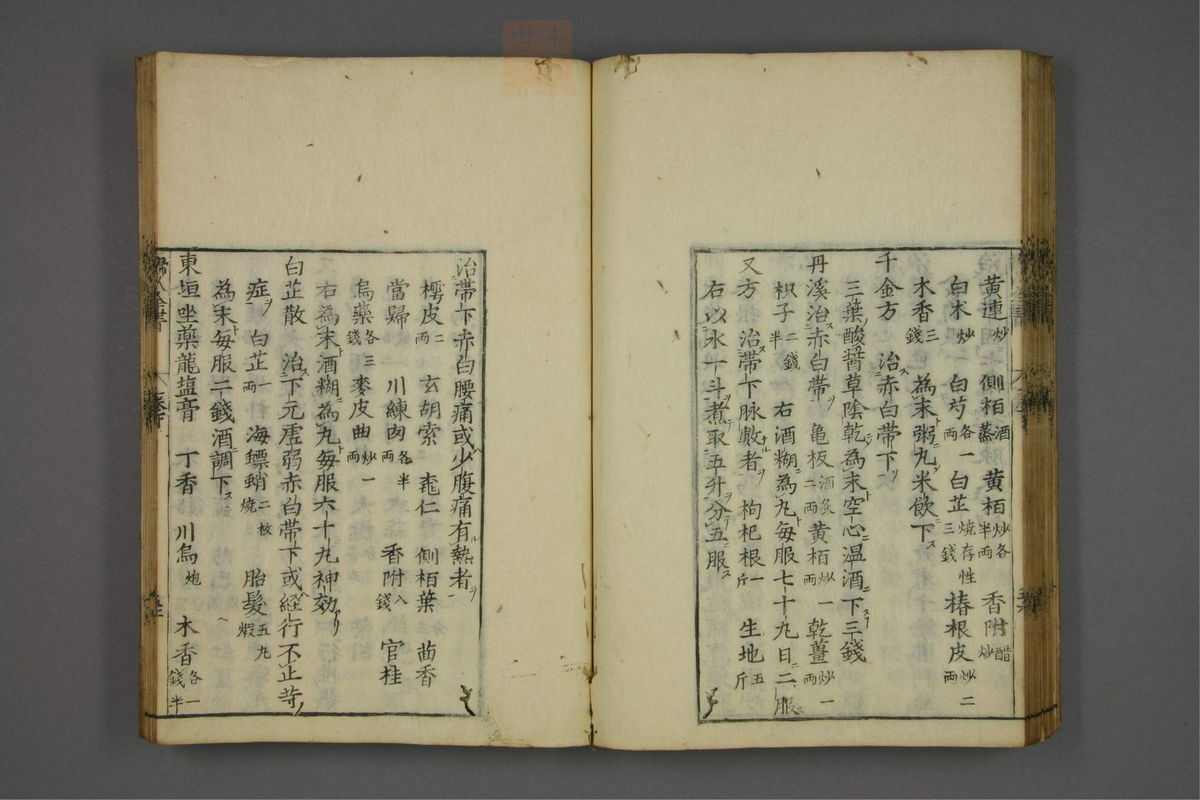 黄連炒 側栢酒蒸 黄栢炒各半両 香附醋炒
白朮炒 白芍各一両 白芷焼存性三錢 椿根皮炒二両
木香三錢 為末粥丸米飲下ス
千金方 治ス赤白帶下ヲ
三葉酸醤草陰乾為末空心温酒下三錢
丹溪治赤白帶ヲ 亀板酒炙二両 黄栢炒一両 乾薑炒一両
枳子二錢半 右酒糊為丸毎服七十丸日二服
又方 治ス帶下脉數者ヲ 枸杞根一斤 生地五斤
右以水一斗煮取五升分五服ス
治帶下赤白腰痛或少腹痛有熱者ヲ
樗皮二両 玄胡索 桃仁 側栢葉 茴香
當歸 川練肉各半両 香附八錢 官桂
烏藥各三錢 麥皮曲炒一両
右為末酒糊為丸毎服六十丸神効アリ
白芷散 治ス下元虚弱赤白帶下或経行不止等ノ
症ヲ 白芷一両 海螵蛸二枚焼 胎髪五丸煆
為末毎服二錢酒調下ス
東垣坐藥龍塩膏 丁香 川烏炮 木香各一錢半